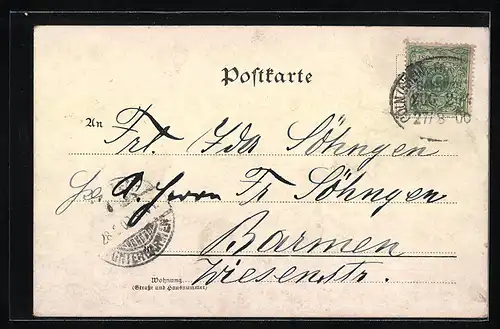 Postkarte
An
Frl. Ida Söhngen
A. Herrn Fr Söhngen
Barmen
Wiesenstr.
Wohnung
(Straße und Hausnummer)
27/ 8 00
UNTERBARMEN